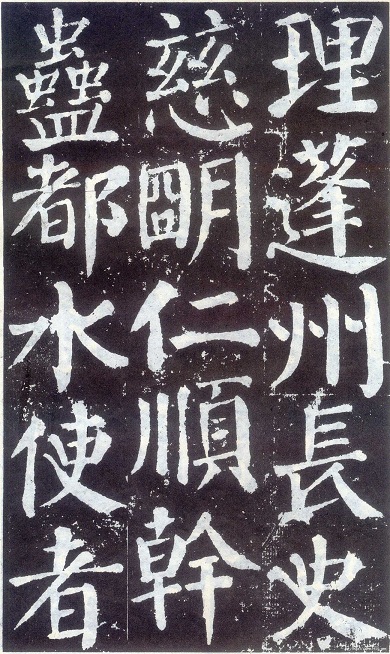 理蓬州長史
慈明仁順幹
蠱都水使者